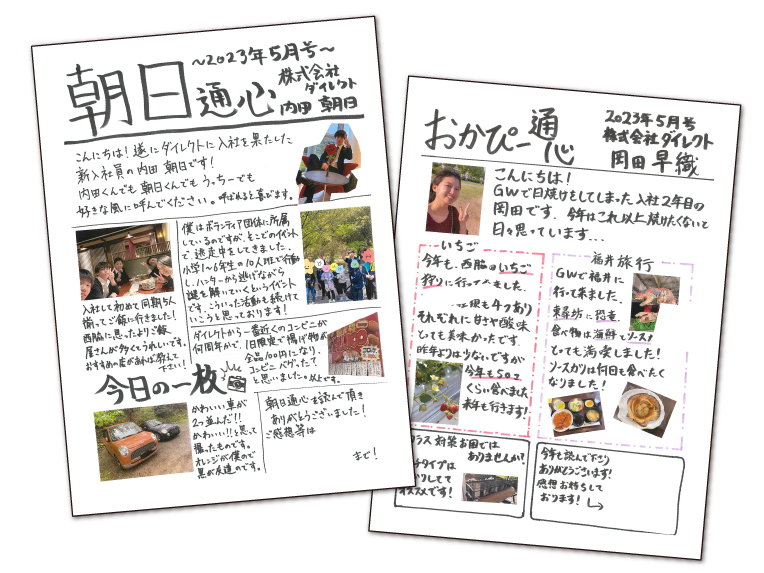 朝日通心
～2023年5月号～
株式会社
ダイレクト
内田 朝日
こんにちは！遂にダイレクトに入社を果たした
新入社員の内田 朝日です！
内田くんでも 朝日くんでも うっちーでも
好きな風に呼んでください。呼ばれると喜びます。
入社して初めて同期5人
揃ってご飯に行きました！
西脇に思ったよりご飯
屋さんが多くてうれしいです。
おすすめの店があれば教えて
下さい！
僕はボランティア団体に所属
しているのですが、そこでのイベント
で、逃走中をしてきました。
小学1～6年生の10人班で行動
し、ハンターから逃げながら
謎を解いていくというイベント
です。こういった活動も続けて
いこうと思っております！
ダイレクトから一番近くのコンビニが
何周年かで、1日限定で揚げ物が
全品100円になり、
コンビニバグったて
と思いました。以上です。
今日の一枚
かわいい車が
2つ並んだ!!
かわいい!!と思って
撮ったものです。
オレンジが僕ので
黒が友達のです。
朝日通心を読んで頂き
ありがとうございました！
ご感想等は
まで！
おかぴー通心
2023年5月号
株式会社ダイレクト
岡田 早織
こんにちは！
GWで日焼けをしてしまった入社2年目の
岡田です。今年はこれ以上焼けたくないと
日々思っています...
いちご
今年も、西脇のいちご
狩りに行ってきました。
種も4つあり
それぞれに甘さや酸味
とっても美味かったです。
昨年よりは少ないですが
今年も50コ
くらい食べました
来年も行きます！
福井旅行
GWで福井に
行って来ました。
東尋坊に恐竜、
食べ物は海鮮でソース!
とっても満喫しました！
ソースカツは何日も食べたく
なりました！
ラス対策お困りでは
ありませんか？
チタイプは
かりしてて
オススメです！
今年も読んで下さり
ありがとうございます！
感想お待ちして
おります！